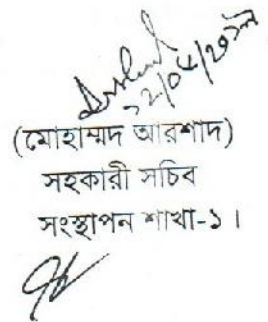 ১২/০৫/২০১৯
(মোহাম্মদ আরশাদ)
সহকারী সচিব
সংস্থাপন শাখা-১।